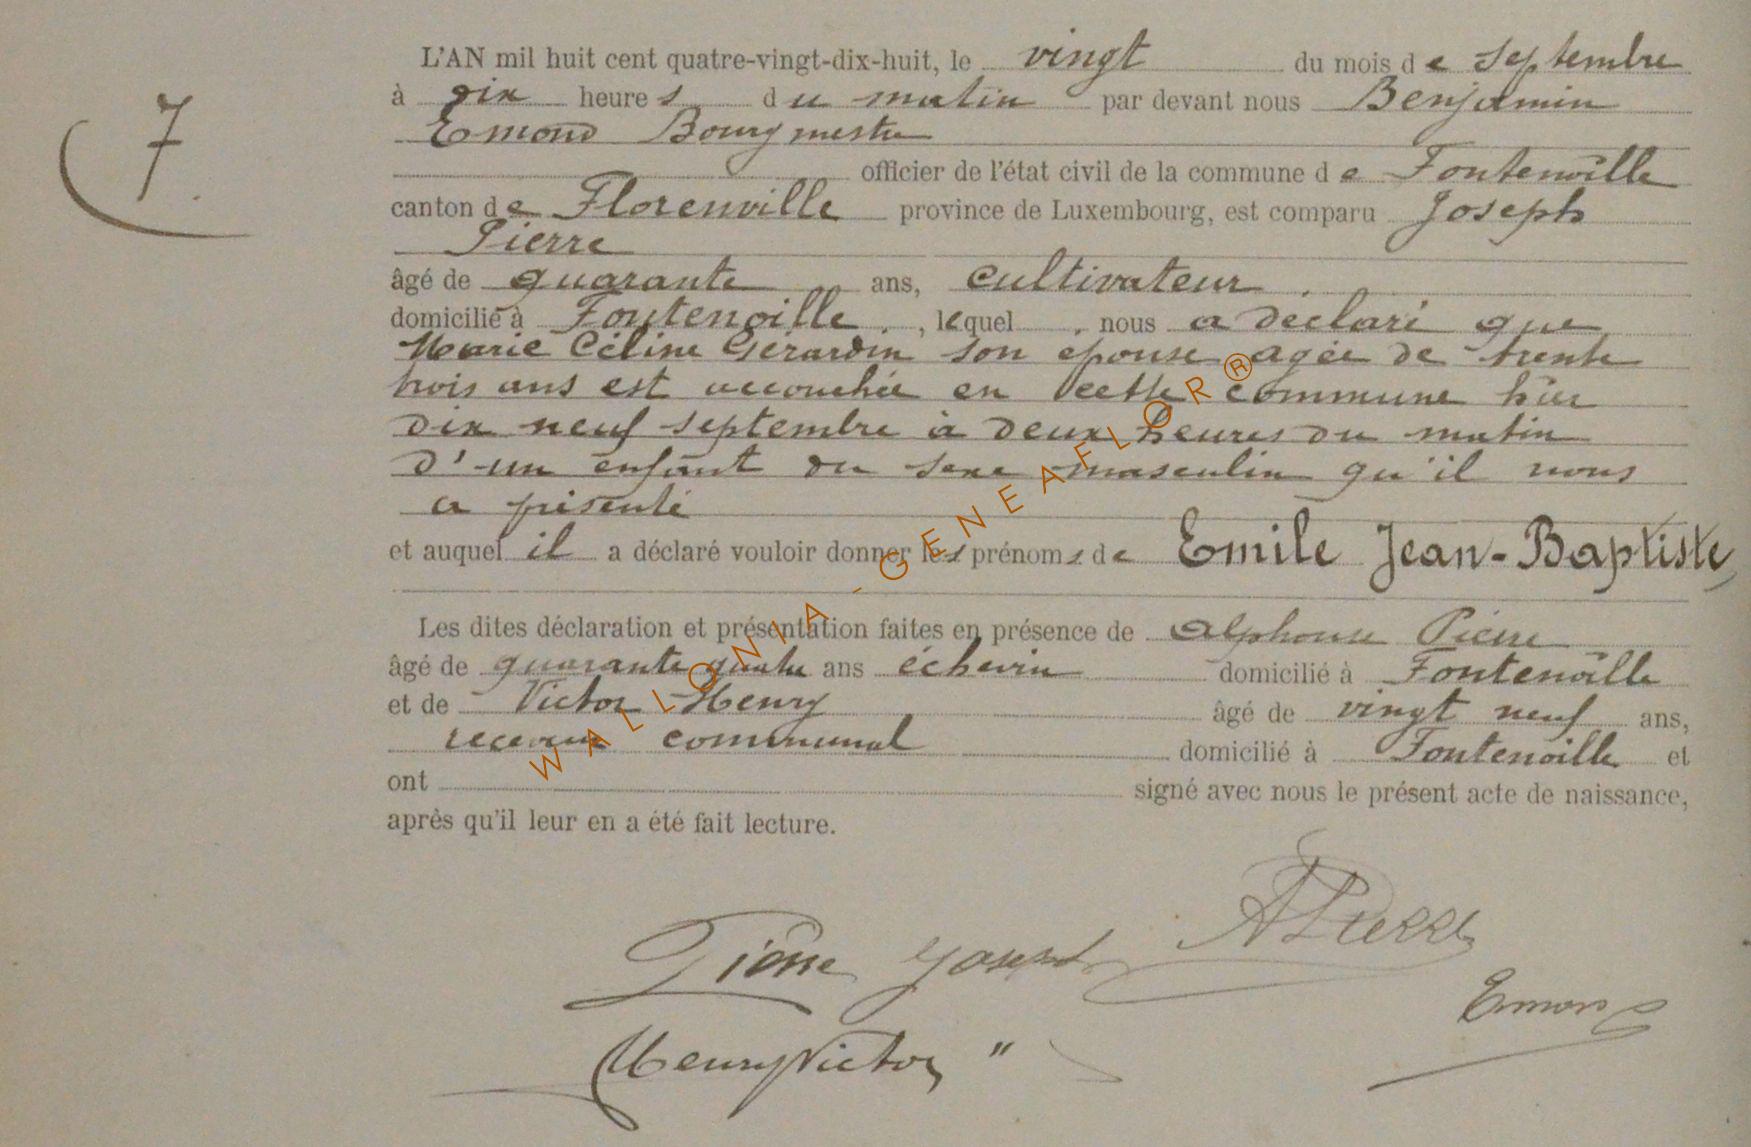 7.
L'AN mil huit cent quatre-vingt-dix-huit, le vingt du mois de Septembre
à dix heures du matin par devant nous Benjamin
Emond Bourgmestre
officier de l'état civil de la commune de Fontenoille
canton de Florenville province de Luxembourg, est comparu Joseph
Pierre
âgé de quarante ans, cultivateur.
domicilié à Fontenoille, lequel, nous a déclaré que
Marie Céline Gérardin son épouse agée de trente
trois ans est accouchée en cette commune hier
dix neuf septembre à deux heures du matin
d'un enfant du sexe masculin qu'il nous
a présenté
et auquel il a déclaré vouloir donner les prénoms de Emile Jean-Baptiste,
Les dites déclaration et présentation faites en présence de Alphonse Pierre
âgé de quarante quatre ans échevin domicilié à Fontenoille
et de Victor Henry âgé de vingt neuf ans,
receveur communal domicilié à Fontenoille et
ont signé avec nous le présent acte de naissance,
après qu'il leur en a été fait lecture.
WALLONIA-GENEAFLOR®
APierre
Pierre Joseph
Emond
Henry Victor "